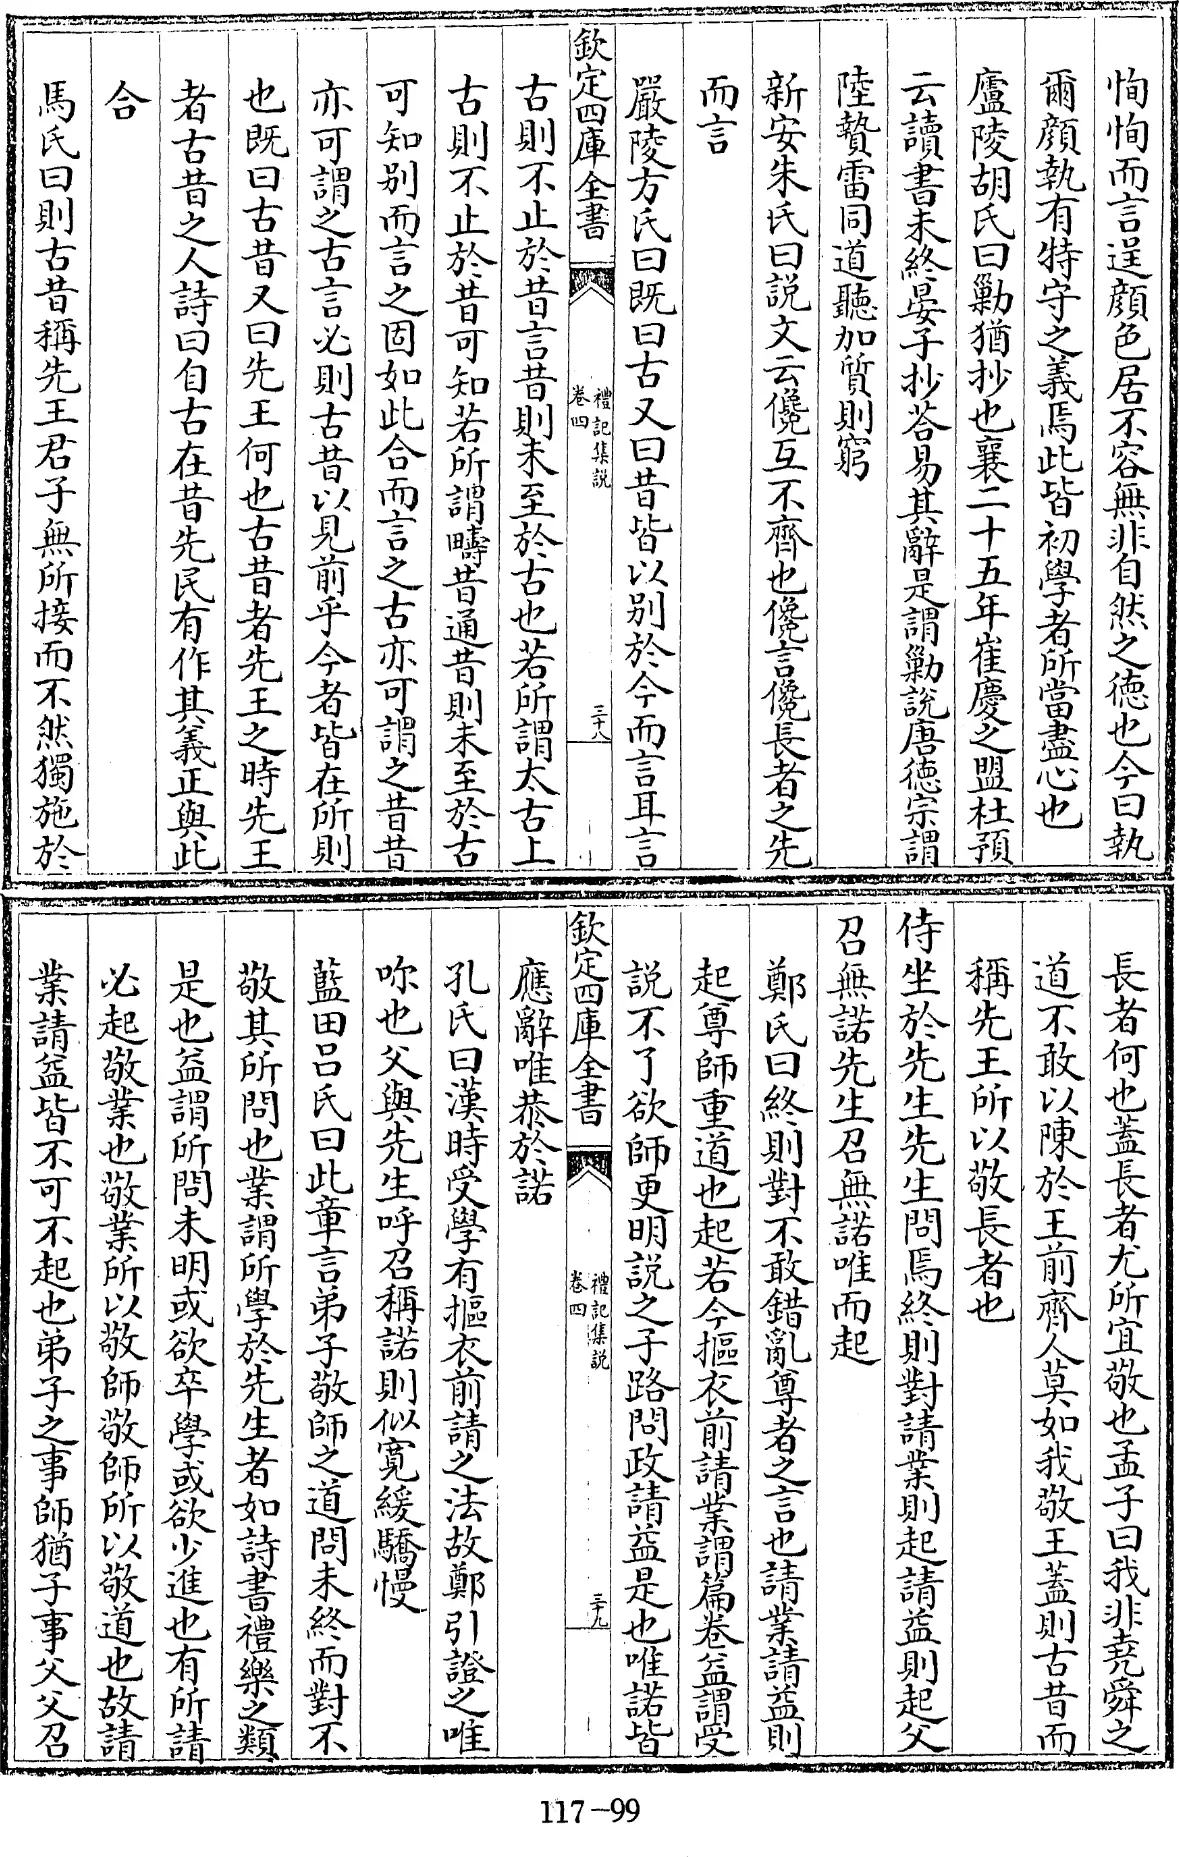 恂恂而言逞顔色居不容無非自然之徳也今曰執
爾顔執有特守之義焉此皆初學者所當盡心也
廬陵胡氏曰勦猶抄也襄二十五年崔慶之盟杜預
云讀書未終晏子抄荅易其辭是謂勦説唐徳宗謂
陸贄雷同道聽加質則窮
新安朱氏曰説文云儳互不齊也儳言儳長者之先
而言
嚴陵方氏曰既曰古又曰昔皆以别於今而言耳言
欽定四庫全書
禮記集説
卷四
三十八
古則不止於昔言昔則未至於古也若所謂太古上
古則不止於昔可知若所謂疇昔通昔則未至於古
可知别而言之固如此合而言之古亦可謂之昔昔
亦可謂之古言必則古昔以見前乎今者皆在所則
也既曰古昔又曰先王何也古昔者先王之時先王
者古昔之人詩曰自古在昔先民有作其義正與此
合
馬氏曰則古昔稱先王君子無所接而不然獨施於
長者何也蓋長者尤所宜敬也孟子曰我非堯舜之
道不敢以陳於王前齊人莫如我敬王蓋則古昔而
稱先王所以敬長者也
侍坐於先生先生問焉終則對請業則起請益則起父
召無諾先生召無諾唯而起
鄭氏曰終則對不敢錯亂尊者之言也請業請益則
起尊師重道也起若今摳衣前請業謂篇卷益謂受
説不了欲師更明説之子路問政請益是也唯諾皆
欽定四庫全書
禮記集説
卷四
三十九
應辭唯恭於諾
孔氏曰漢時受學有摳衣前請之法故鄭引證之唯
唹也父與先生呼召稱諾則似寛緩驕慢
藍田吕氏曰此章言弟子敬師之道問未終而對不
敬其所問也業謂所學於先生者如詩書禮樂之類
是也益謂所問未明或欲卒學或欲少進也有所請
必起敬業也敬業所以敬師敬師所以敬道也故請
業請益皆不可不起也弟子之事師猶子事父父召
117-99